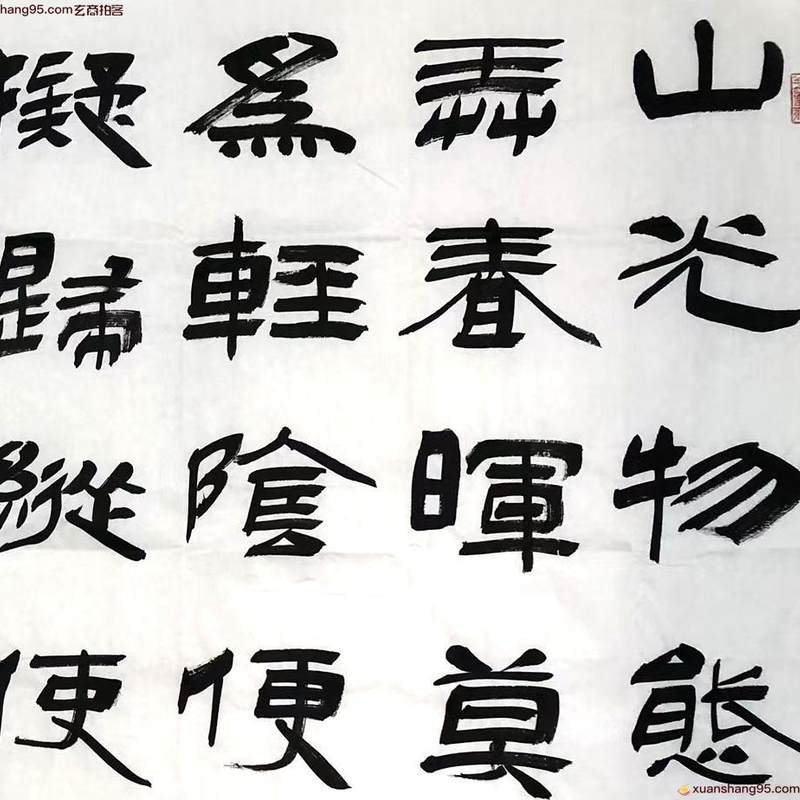 hang95.com玄商拍客
山光物態
弄春暉莫
為輕陰便
擬歸縱使
xuanshang95.com